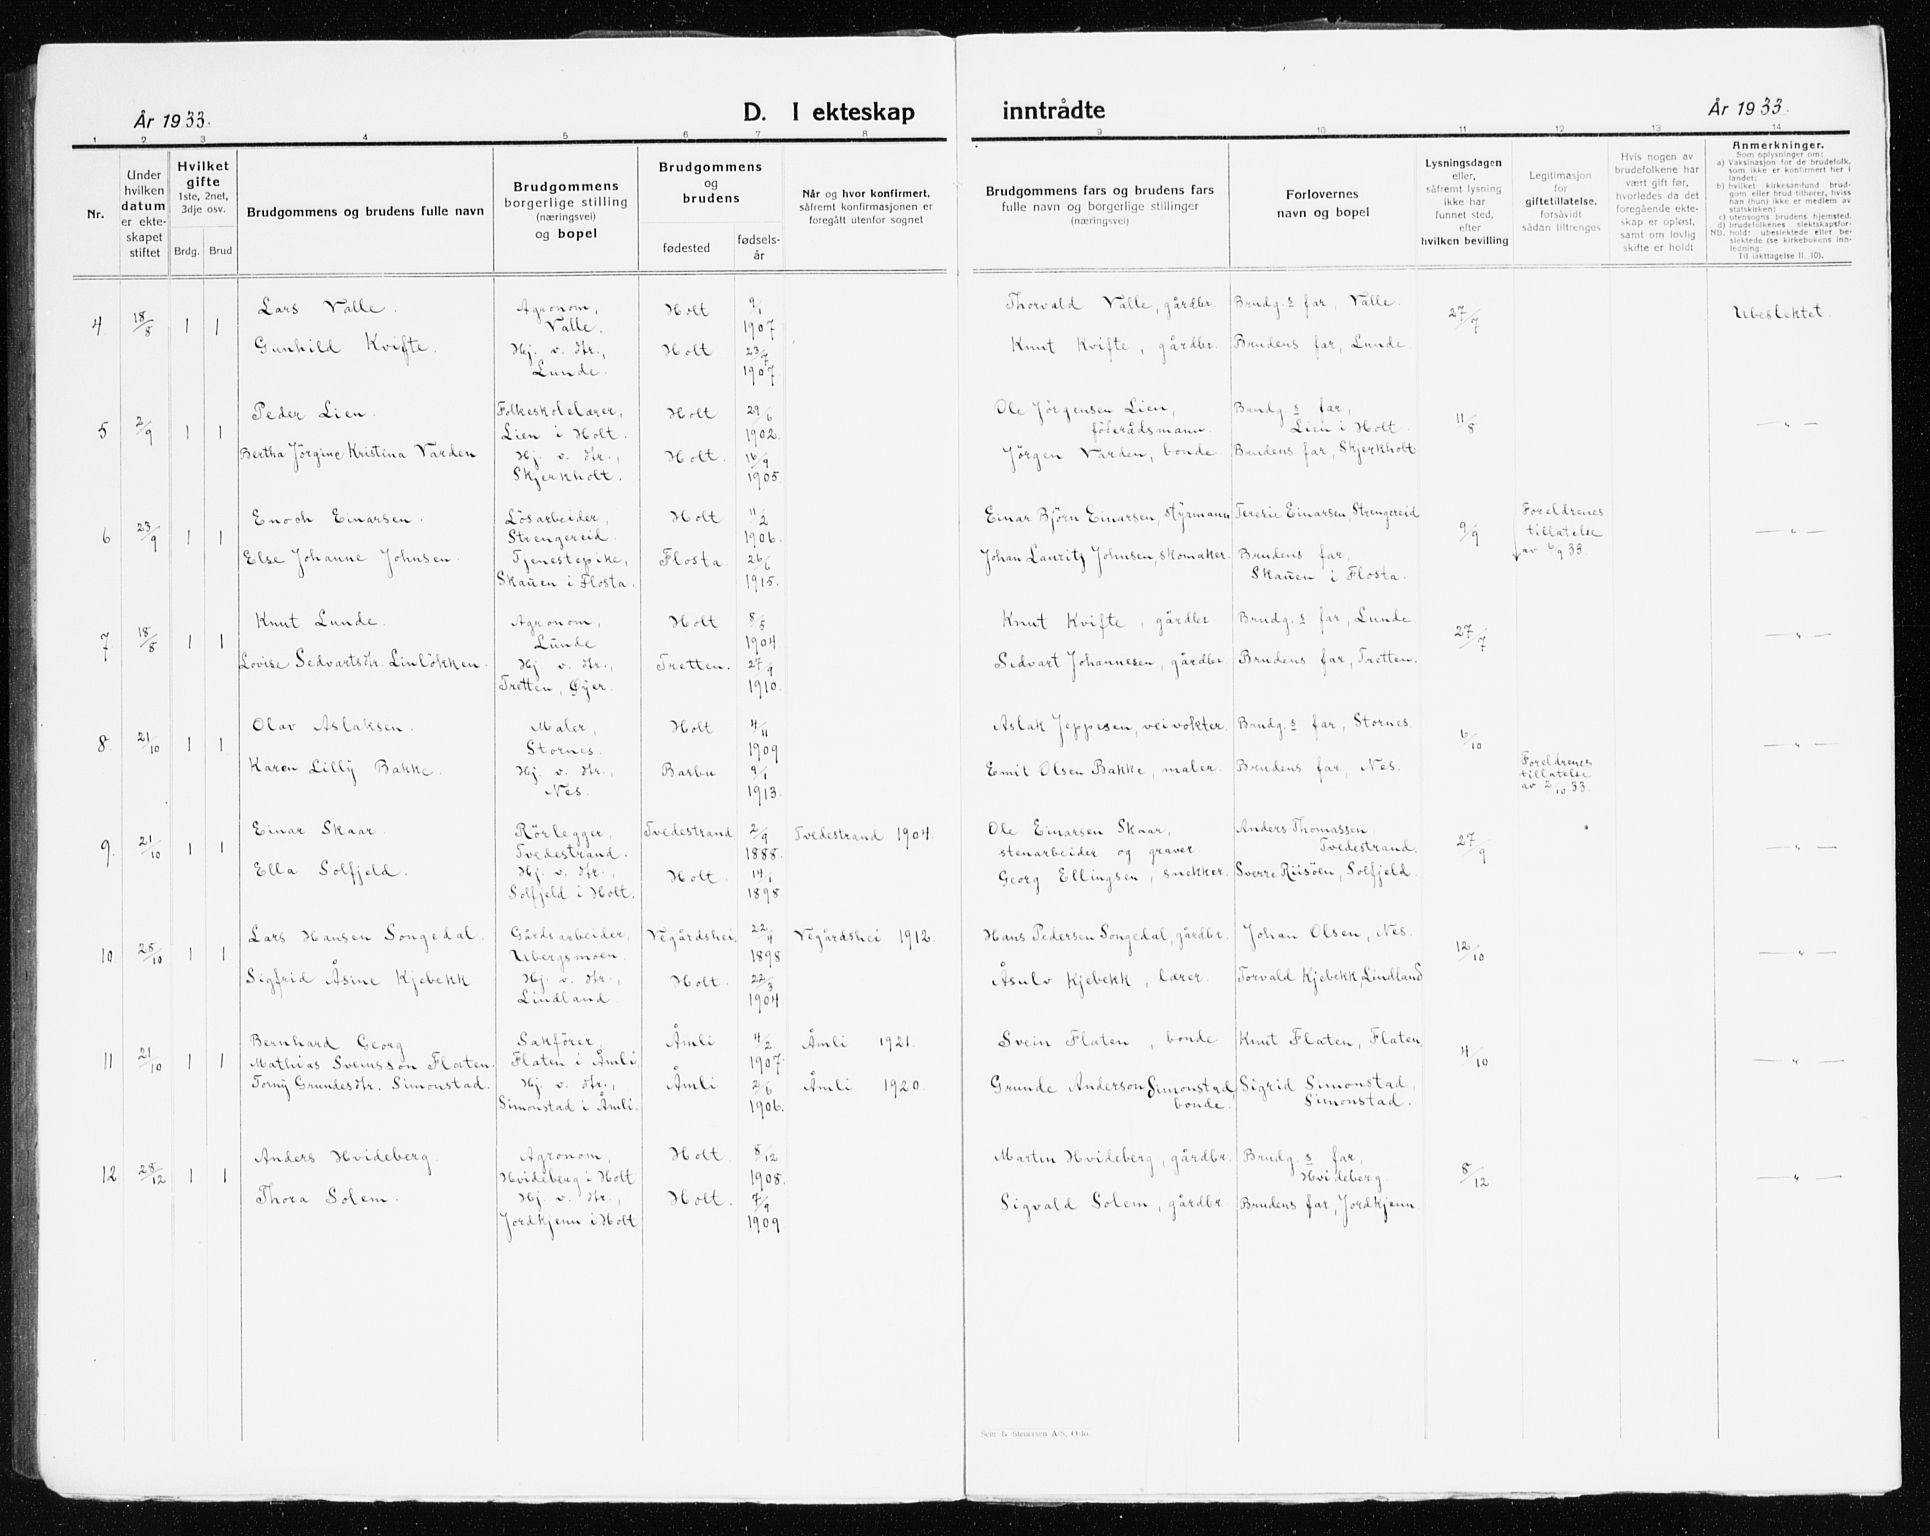 År 1933.
D. I ekteskap inntrådte
År 1933.
1 2 3 4 5 6 7 8 9 10 11 12 13 14
Nr.
Under
hvilken
datum
er ekte-
skapet
stiftet
Hvilket
gifte
1ste, 2net,
3dje osv.
Brdg. Brud
Brudgommens og brudens fulle navn
Brudgommens
borgerlige stilling
(næringsvei)
og bopel
Brudgommens
og
brudens
fødested
fødsels-
år
Når og hvor konfirmert,
såfremt konfirmasjonen er
foregått utenfor sognet
Brudgommens fars og brudens fars
fulle navn og borgerlige stillinger
(næringsvei)
Forlovernes
navn og bopel
Lysningsdagen
eller,
såfremt lysning
ikke har
funnet sted,
efter
hvilken bevilling
Legitimasjon
for
giftetillatelse,
forsåvidt
sådan tiltrenges
Hvis nogen av
brudefolkene har
vært gift før,
hvorledes da det
foregående ekte-
skap er opløst,
samt om lovlig
skifte er holdt
Anmerkninger.
Som oplysninger om:
a) Vaksinasjon for de brudefolk,
som ikke er konfirmert her i
landet;
b) hvilket kirkesamfund brud-
gom eller brud tilhører, hviss
han (hun) ikke er medlem av
statskirken;
c) utensogns brudens hjemsted.
d) brudefolkenes slektskapsfor-
NB. hold: ubeslektede eller be-
slektede (se kirkebokens inn-
ledning:
Til iakttagelse II. 10).
4 18/8 1 1
Lars Valle. Agronom, Holt 9/1 Thorvald Valle, gårdbr. Brudg.s far, Valle. 27/7 Ubeslektet.
Valle. 1907
Gunhild Kvifte. Hj. v. htr., Holt 23/7 Knut Kvifte, gårdbr. Brudens far, Lunde.
Lunde. 1907.
5 2/9 1 1
Peder Lien. Folkeskolelærer, Holt 29/6 Ole Jörgensen Lien, Brudg.s far, 11/8 — " —
Lien i Holt. 1902. föderådsmann. Lien i Holt.
Bertha Jörgine Kristina Varden Hj. v. htr., Holt. 16/9 Jörgen Varden, bonde. Brudens far, Skjerkholt
Skjerkholt. 1905.
6 23/9 1 1
Enoch Einarsen. Lösarbeider, Holt 11/2 Einar Björn Einarsen, styrmann Teresie Einarsen, Strengereid 9/9 Foreldrenes — " —
Strengereid. 1906. tillatelse
Else Johanne Johnsen. Tjenestepike, Flosta. 26/6 Johan Lauritz Johnsen, skomaker. Brudens far, av 6/9 33.
Skauen i Flosta. 1915. Skauen i Flosta.
7 18/8 1 1
Knut Lunde. Agronom, Holt 8/5 Knut Kvifte, gårdbr Brudg.s far, Lunde. 27/7 — " —
Lunde 1904
Lovise Sedvartsdtr. Linlökken. Hj v. htr., Tretten. 27/9 Sedvart Johannesen, gårdbr Brudens far, Tretten.
Tretten, Øyer. 1910.
8. 21/10 1 1
Olav Aslaksen. Maler, Holt 4/11 Aslak Jeppesen, veivokter. Brudg.s far, Stornes. 6/10 — " —
Stornes. 1909
Karen Lilly Bakke. Hj. v. htr., Barbu 9/1 Emil Olsen Bakke, maler. Brudens far, Nes. Foreldrenes
Nes. 1913. tillatelse
av 2/10 33.
9. 21/10 1 1
Einar Skaar. Rörlegger, Tvedestrand 2/9 Tvedestrand 1904. Ole Einarsen Skaar, Anders Thomassen, 27/9 — " —
Tvedestrand. 1888. stenarbeider og graver. Tvedestrand.
Ella Solfjeld. Hj. v. htr., Holt. 14/1 Georg Ellingsen, snekker. Sverre Riisöen, Solfjeld.
Solfjeld i Holt. 1898
10 28/10 1 1
Lars Hansen Songedal. Gårdsarbeider, Vegårdshei. 22/4 Vegårdshei 1912. Hans Pedersen Songedal, gårdbr. Johan Olsen, Nes. 12/10 — " —
Ubergsmoen. 1898
Sigfrid Åsine Kjebekk Hj. v. htr., Holt. 22/3 Åsulv Kjebekk, lærer. Torvald Kjebekk, Lindland
Lindland. 1904
11 21/10 1 1
Bernhard Georg Sakförer, Åmli 4/2 Åmli 1921. Svein Flaten, bonde Knut Flaten, Flaten. 4/10 — " —
Mathias Sveinsson Flaten. Flaten i Åmli. 1907.
Torny Grundesdtr. Simonstad. Hj. v. htr., Åmli 2/6 Åmli 1920. Grunde Anderson Simonstad, Sigrid Simonstad,
Simonstad i Åmli. 1906. bonde. Simonstad.
12 28/12 1 1
Anders Hvideberg. Agronom, Holt. 8/12 Marten Hvideberg, gårdbr. Brudg.s far, 8/12 — " —
Hvideberg i Holt 1908. Hvideberg.
Thora Solem. Hj. v. htr., Holt. 7/9 Sigvald Solem, gårdbr. Brudens far, Jordkjenn.
Jordkjenn i Holt 1909
Sem & Stenersen A/S, Oslo.